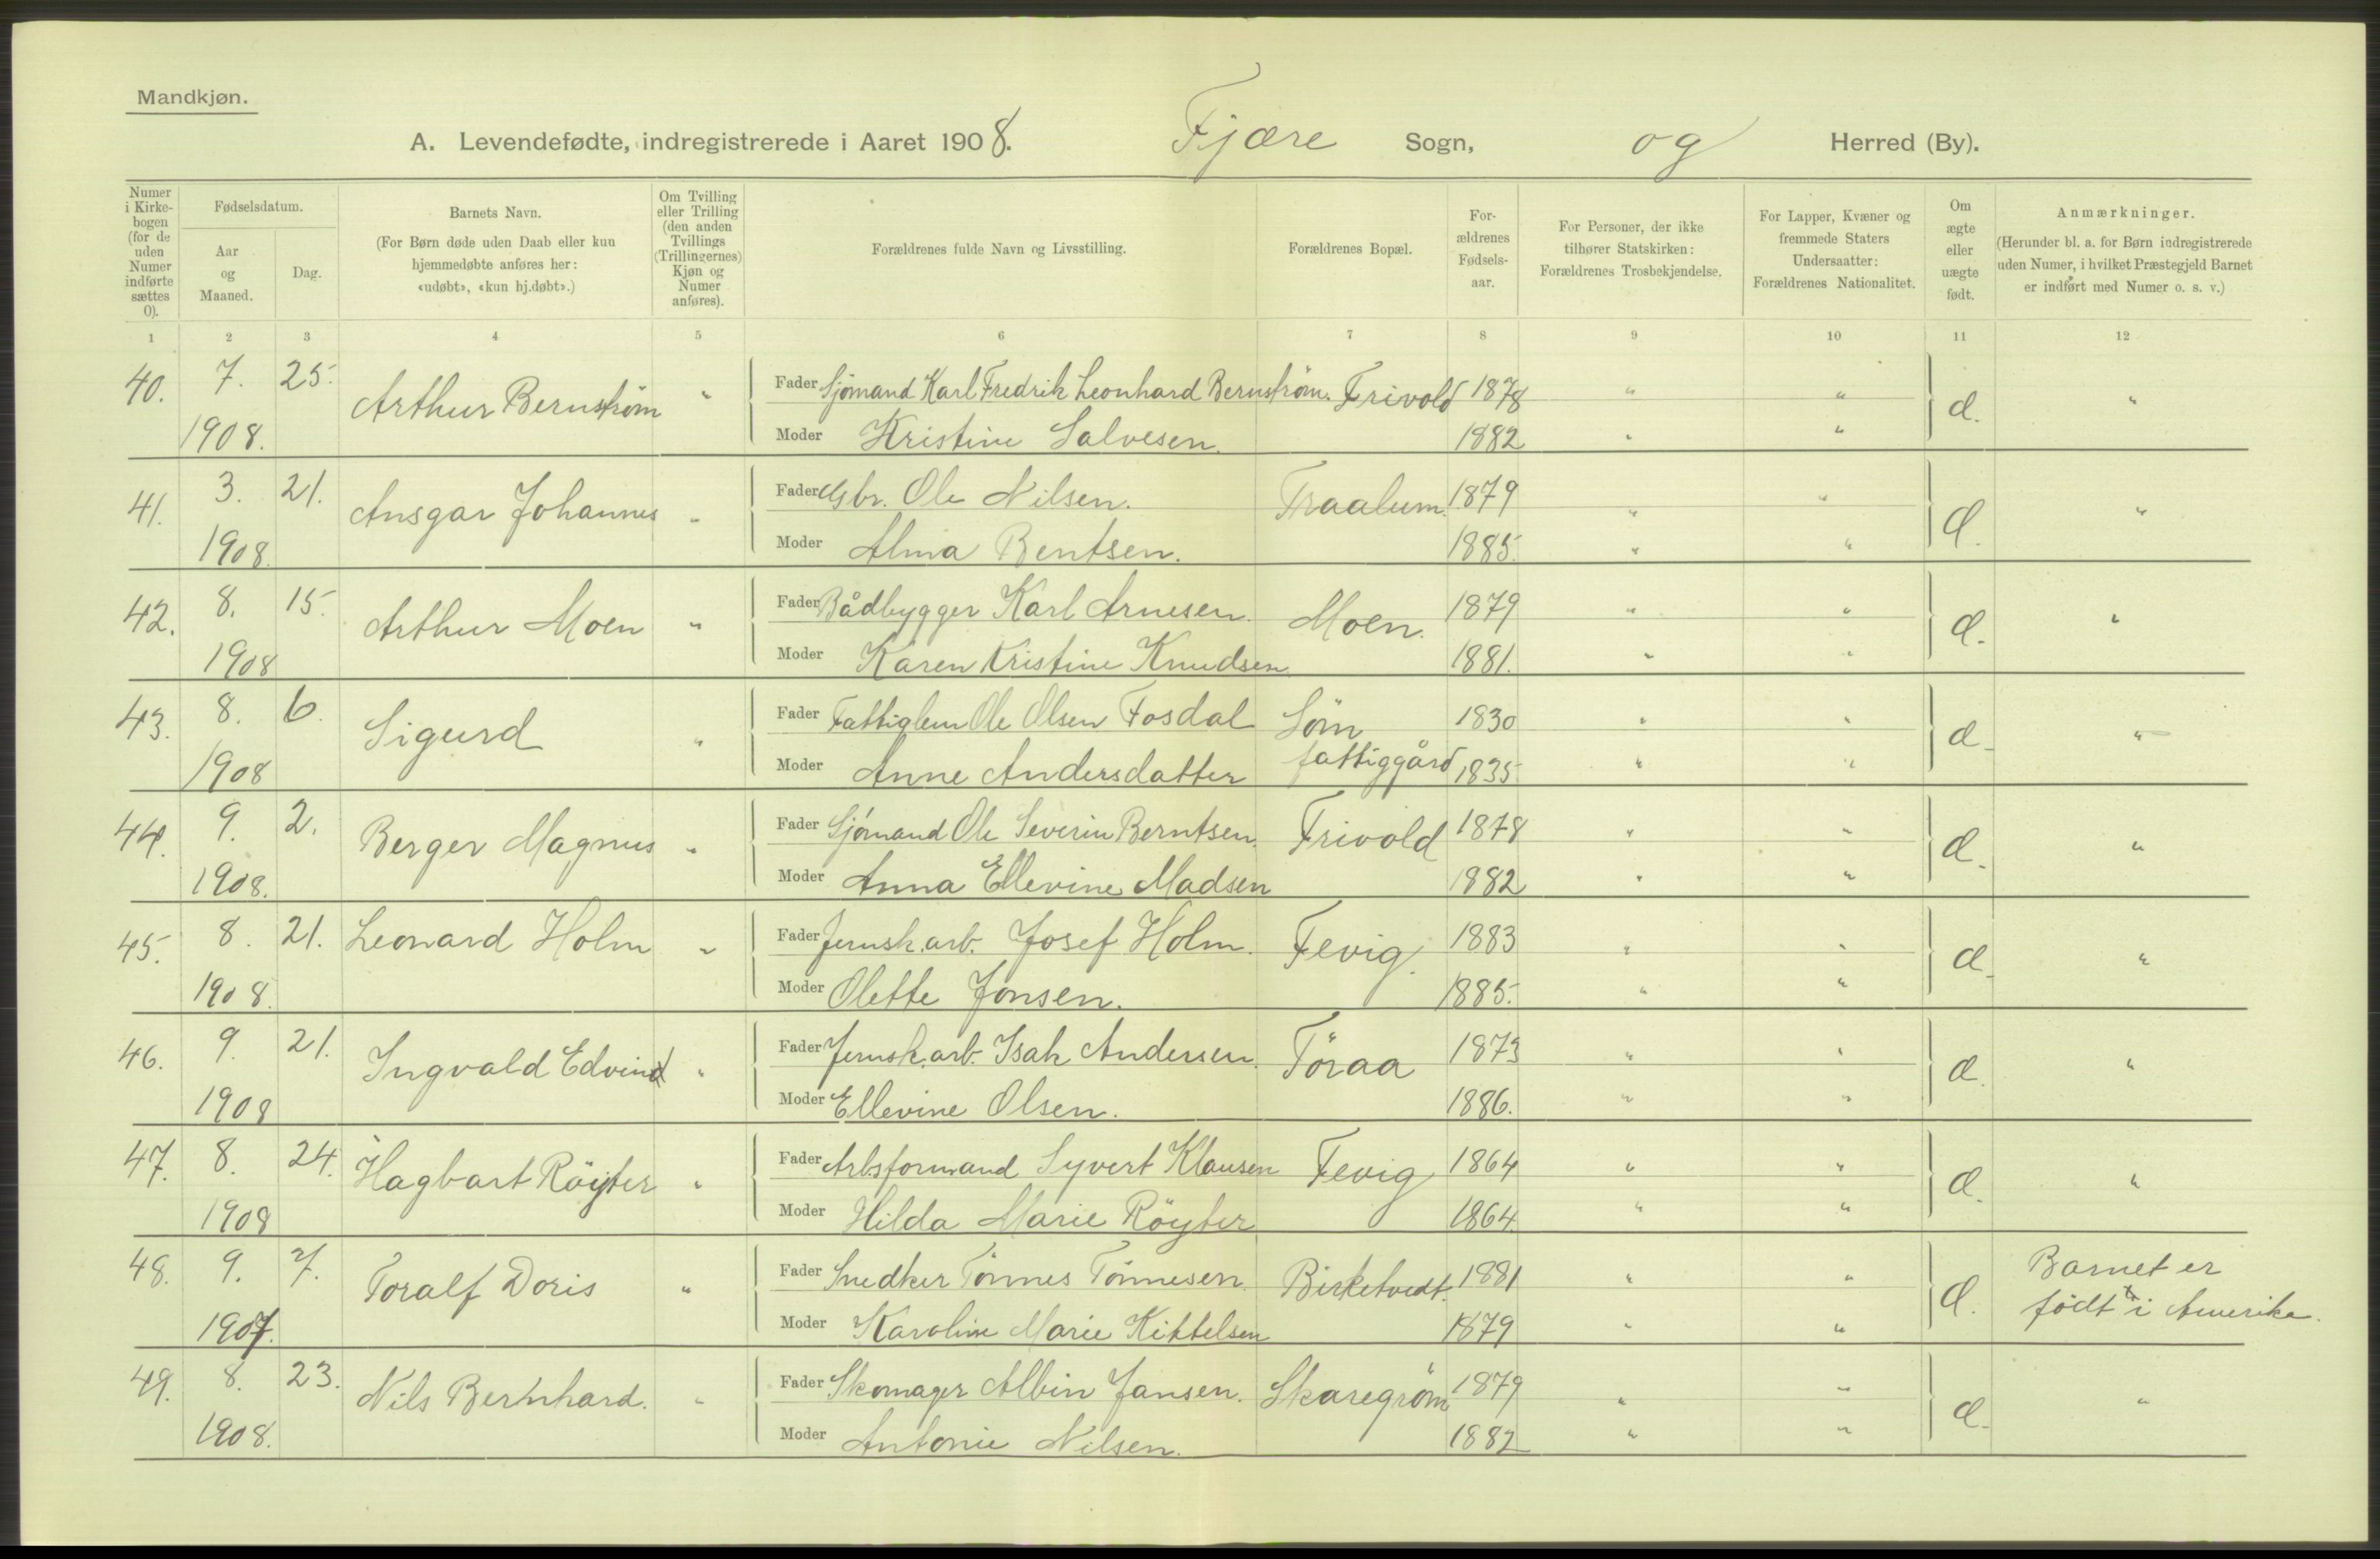 Mandkjøn.
A. Levendefødte, indregistrerede i Aaret 1908. Fjære Sogn, og Herred (By).
Numer i Kirkebogen (for de uden Numer indførte sættes 0).
Fødselsdatum.
Aar og Maaned.
Dag.
Barnets Navn.
(For Børn døde uden Daab eller kun hjemmedøbte anføres her: «udøbt», «kun hj.døbt».)
Om Tvilling eller Trilling (den anden Tvillings (Trillingernes) Kjøn og Numer anføres).
Forældrenes fulde Navn og Livsstilling.
Forældrenes Bopæl.
Forældrenes Fødselsaar.
For Personer, der ikke tilhører Statskirken: Forældrenes Trosbekjendelse.
For Lapper, Kvæner og fremmede Staters Undersaatter: Forældrenes Nationalitet.
Om ægte eller uægte født.
Anmærkninger.
(Herunder bl. a. for Børn indregistrerede uden Numer, i hvilket Præstegjeld Barnet er indført med Numer o. s. v.)
1 2 3 4 5 6 7 8 9 10 11 12
40. 7. 25. Arthur Bernström " Fader Sjømand Karl Fredrik Leonhard Bernström. Frivold 1878 " " d. "
1908. Moder Kristine Salvesen. 1882 " "
41. 3. 21. Ansgar Johannes " Fader Gbr. Ole Nilsen. Traalum. 1879 " " d. "
1908. Moder Alma Bentsen. 1885. " "
42. 8. 15. Arthur Moen " Fader Bådbygger Karl Arnesen. Moen. 1879 " " d. "
1908 Moder Karen Kristine Knudsen 1881. " "
43. 8. 6. Sigurd " Fader Fattiglem Ole Olsen Fosdal Söm 1830 " " d. "
1908 Moder Anne Andersdatter fattiggård 1835. " "
44. 9. 2. Berger Magnus " Fader Sjømand Ole Severin Berntsen. Frivold 1878 " " d. "
1908. Moder Anna Ellevine Madsen 1882 " "
45. 8. 21. Leonard Holm " Fader Jernsk.arb. Josef Holm. Fevig. 1883 " " d. "
1908. Moder Olette Jonsen. 1885. " "
46. 9. 21. Ingvald Edvind " Fader Jernsk.arb. Isak Andersen. Töraa 1873 " " d. "
1908 Moder Ellevine Olsen. 1886. " "
47. 8. 24. Hagbart Röyter " Fader Arbsformand Syvert Klausen Fevig 1864 " " d. "
1908 Moder Hilda Marie Röyter 1864. " "
48. 9. 7. Toralf Doris " Fader Snedker Tönnes Tönnesen. Birketvedt. 1881 " " d. Barnet er
1907. Moder Karoline Marie Kittelsen 1879 " " født i Amerika.
49. 8. 23. Nils Bernhard. " Fader Skomager Albin Jansen. Skaregröm 1879 " " d. "
1908. Moder Antonie Nilsen. 1882 " "